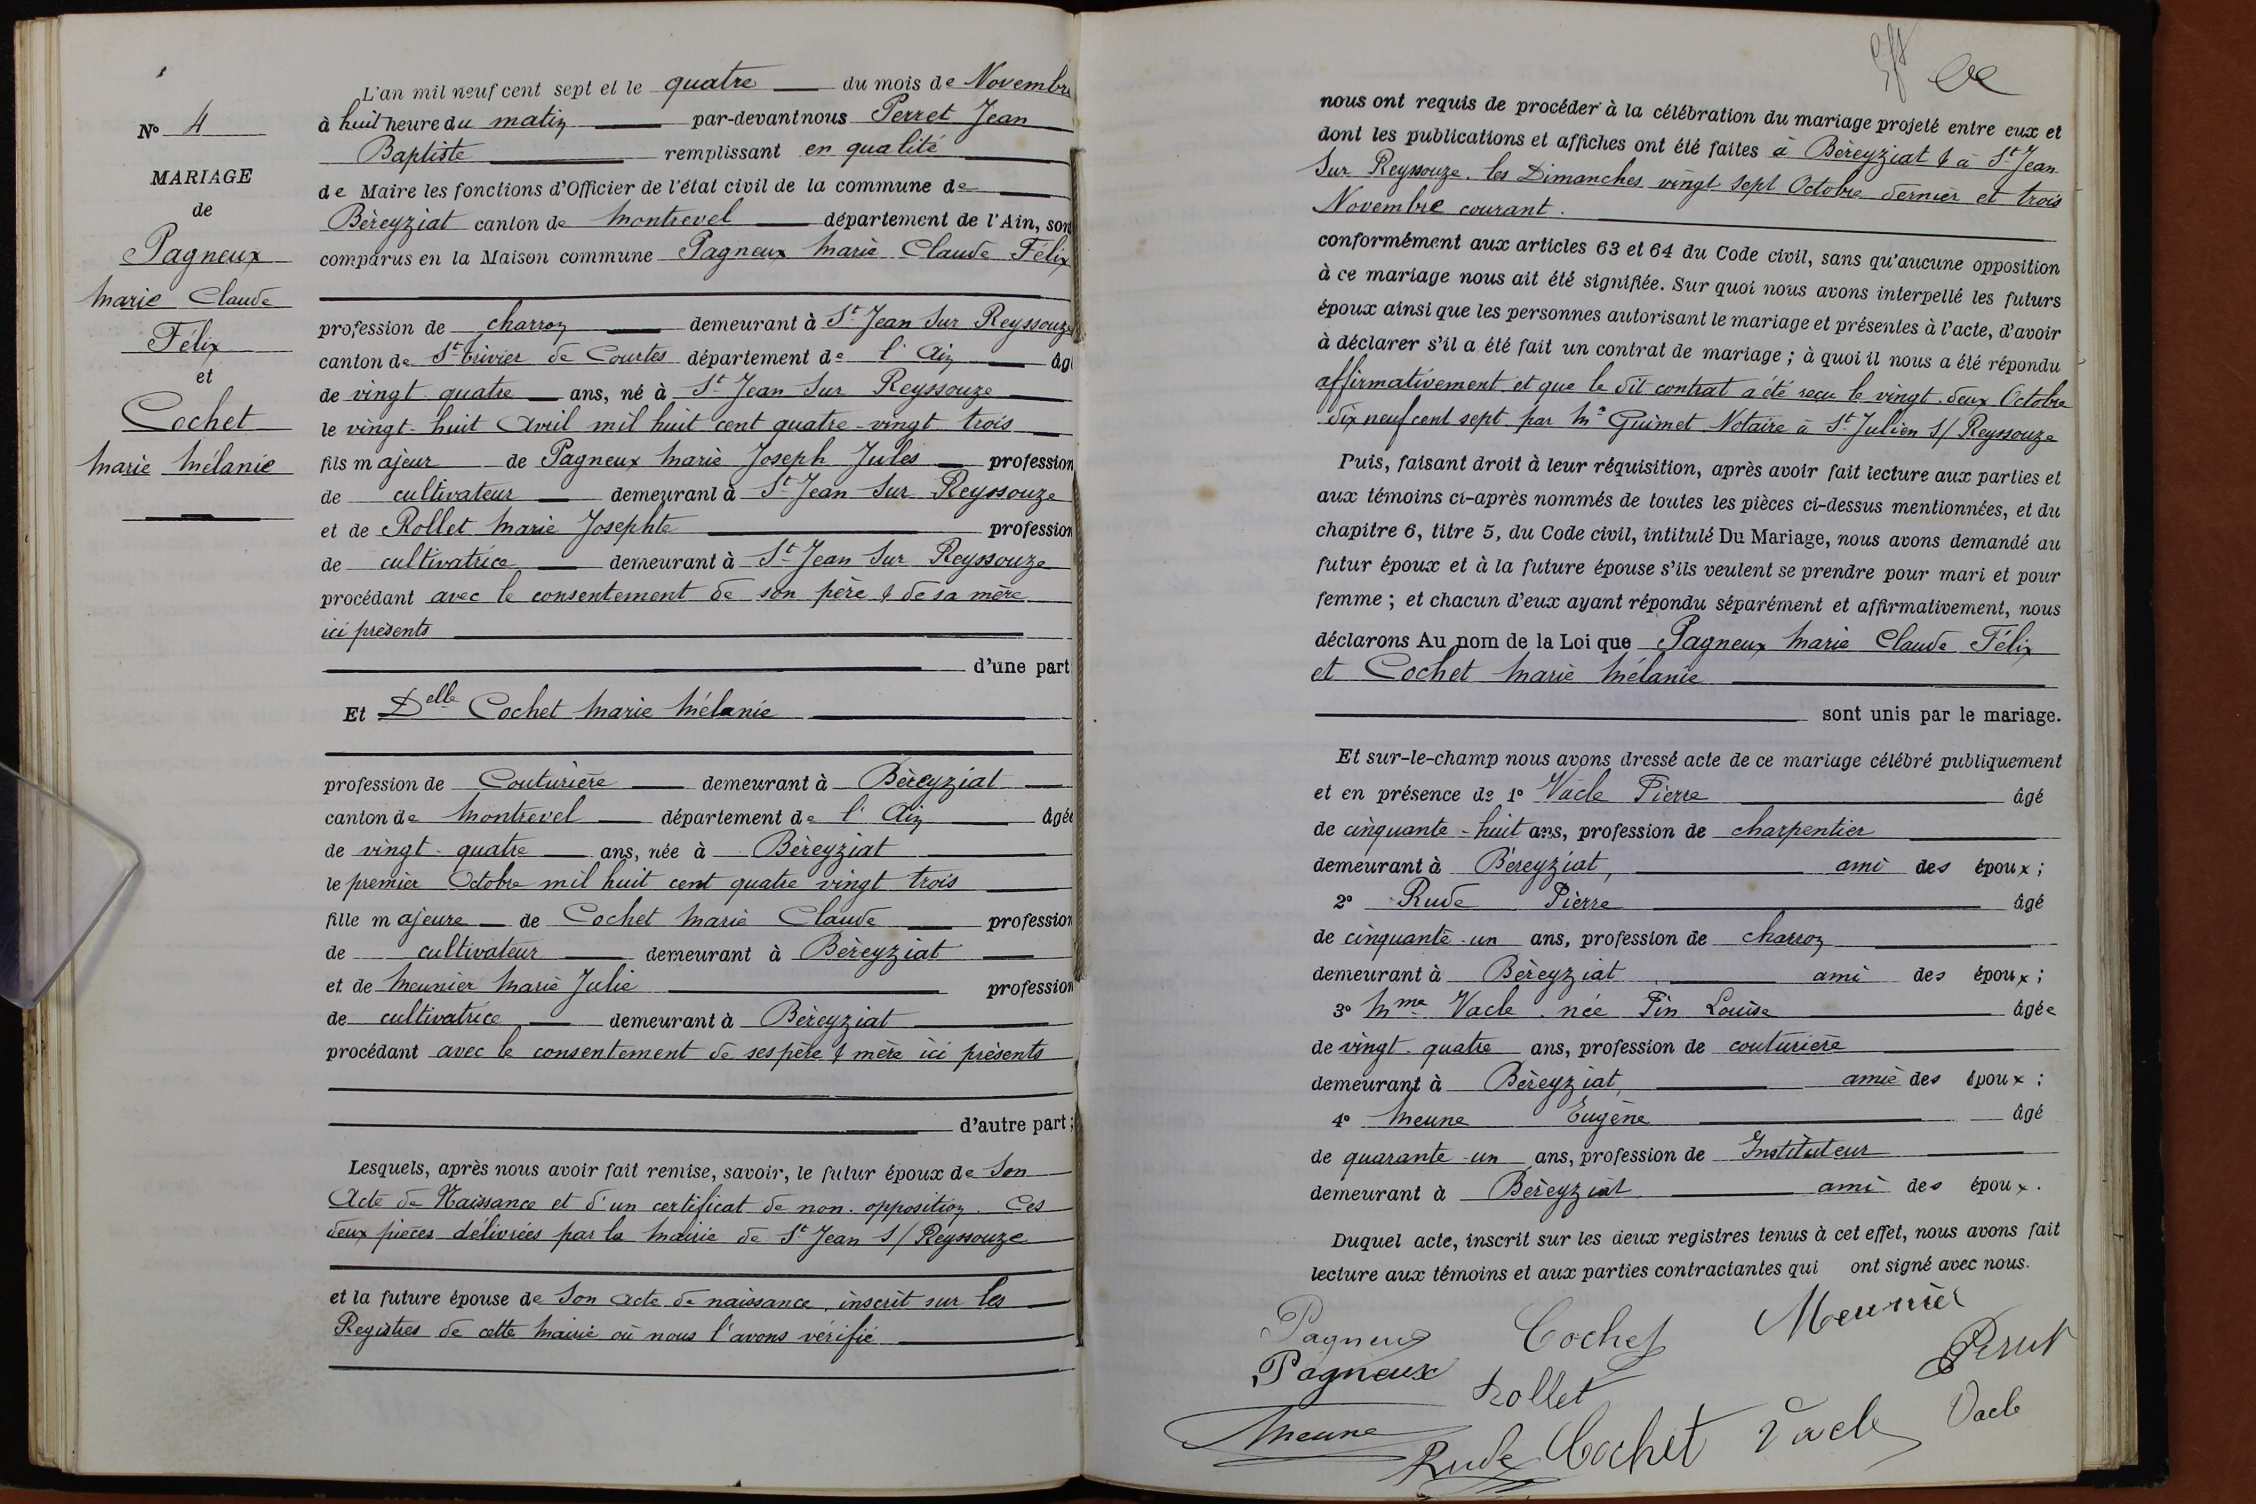 N° 4
MARIAGE
de
Pagneux
Marie Claude
Félix
et
Cochet
Marie Mélanie
L'an mil neuf cent sept et le quatre du mois de Novembre
à huit heure du matin par-devant nous Perret Jean
Baptiste remplissant en qualité
de Maire les fonctions d'Officier de l'état civil de la commune de
Bèreyziat canton de Montrevel département de l'Ain, son
comparus en la Maison commune Pagneux Marie Claude Félix
profession de charron demeurant à St Jean Sur Reyssouze
canton de St Trivier de Courtes département de l'Ain âgé
de vingt quatre ans, né à St Jean Sur Reyssouze
le vingt-huit Avril mil huit cent quatre-vingt trois
fils majeur de Pagneux Marie Joseph Jules profession
de cultivateur demeurant à St Jean Sur Reyssouze
et de Rollet Marie Josephte profession
de cultivatrice demeurant à St Jean Sur Reyssouze
procédant avec le consentement de son père & de sa mère
ici présents
d'une part
Et Delle Cochet Marie Mélanie
profession de Couturière demeurant à Bèreyziat
canton de Montrevel département de l'Ain âgée
de vingt-quatre ans, née à Bèreyziat
le premier Octobre mil huit cent quatre vingt trois
fille majeure de Cochet Marie Claude profession
de cultivateur demeurant à Bèreyziat
et de Meunier Marie Julie profession
de cultivatrice demeurant à Bèreyziat
procédant avec le consentement de ses père & mère ici présents
d'autre part;
Lesquels, après nous avoir fait remise, savoir, le futur époux de Son
Acte de Naissance et d'un certificat de non-opposition. Ces
deux pièces délivrées par la Mairie de St Jean S/ Reyssouze
et la future épouse de Son acte de naissance, inscrit sur les
Registres de cette Mairie où nous l'avons vérifié
nous ont requis de procéder à la célébration du mariage projeté entre eux et
dont les publications et affiches ont été faites à Bèreyziat & à St Jean
Sur Reyssouze. les Dimanches vingt sept Octobre dernier et trois
Novembre courant.
conformément aux articles 63 et 64 du Code civil, sans qu'aucune opposition
à ce mariage nous ait été signifiée. Sur quoi nous avons interpellé les futurs
époux ainsi que les personnes autorisant le mariage et présentes à l'acte, d'avoir
à déclarer s'il a été fait un contrat de mariage; à quoi il nous a été répondu
affirmativement et que le dit contrat a été reçu le vingt-deux Octobre
dix neuf cent sept par Me Guimet Notaire à St Julien S/ Reyssouze
Puis, faisant droit à leur réquisition, après avoir fait lecture aux parties et
aux témoins ci-après nommés de toutes les pièces ci-dessus mentionnées, et du
chapitre 6, titre 5, du Code civil, intitulé Du Mariage, nous avons demandé au
futur époux et à la future épouse s'ils veulent se prendre pour mari et pour
femme; et chacun d'eux ayant répondu séparément et affirmativement, nous
déclarons Au nom de la Loi que Pagneux Marie Claude Félix
et Cochet Marie Mélanie
sont unis par le mariage.
Et sur-le-champ nous avons dressé acte de ce mariage célébré publiquement
et en présence de 1° Vacle Pierre âgé
de cinquante-huit ans, profession de charpentier
demeurant à Bèreyziat, ami des époux;
2° Rude Pierre âgé
de cinquante-un ans, profession de charron
demeurant à Bèreyziat, ami des époux;
3° Mme Vacle née Pin Louise âgée
de vingt-quatre ans, profession de couturière
demeurant à Bèreyziat, amie des époux;
4° Meune Eugène âgé
de quarante-un ans, profession de Instituteur
demeurant à Bèreyziat ami des époux.
Duquel acte, inscrit sur les deux registres tenus à cet effet, nous avons fait
lecture aux témoins et aux parties contractantes qui ont signé avec nous.
Pagneux Cochet Meunier
Pagneux Rollet Perret
Meune Rude Cochet Vacle Vacle